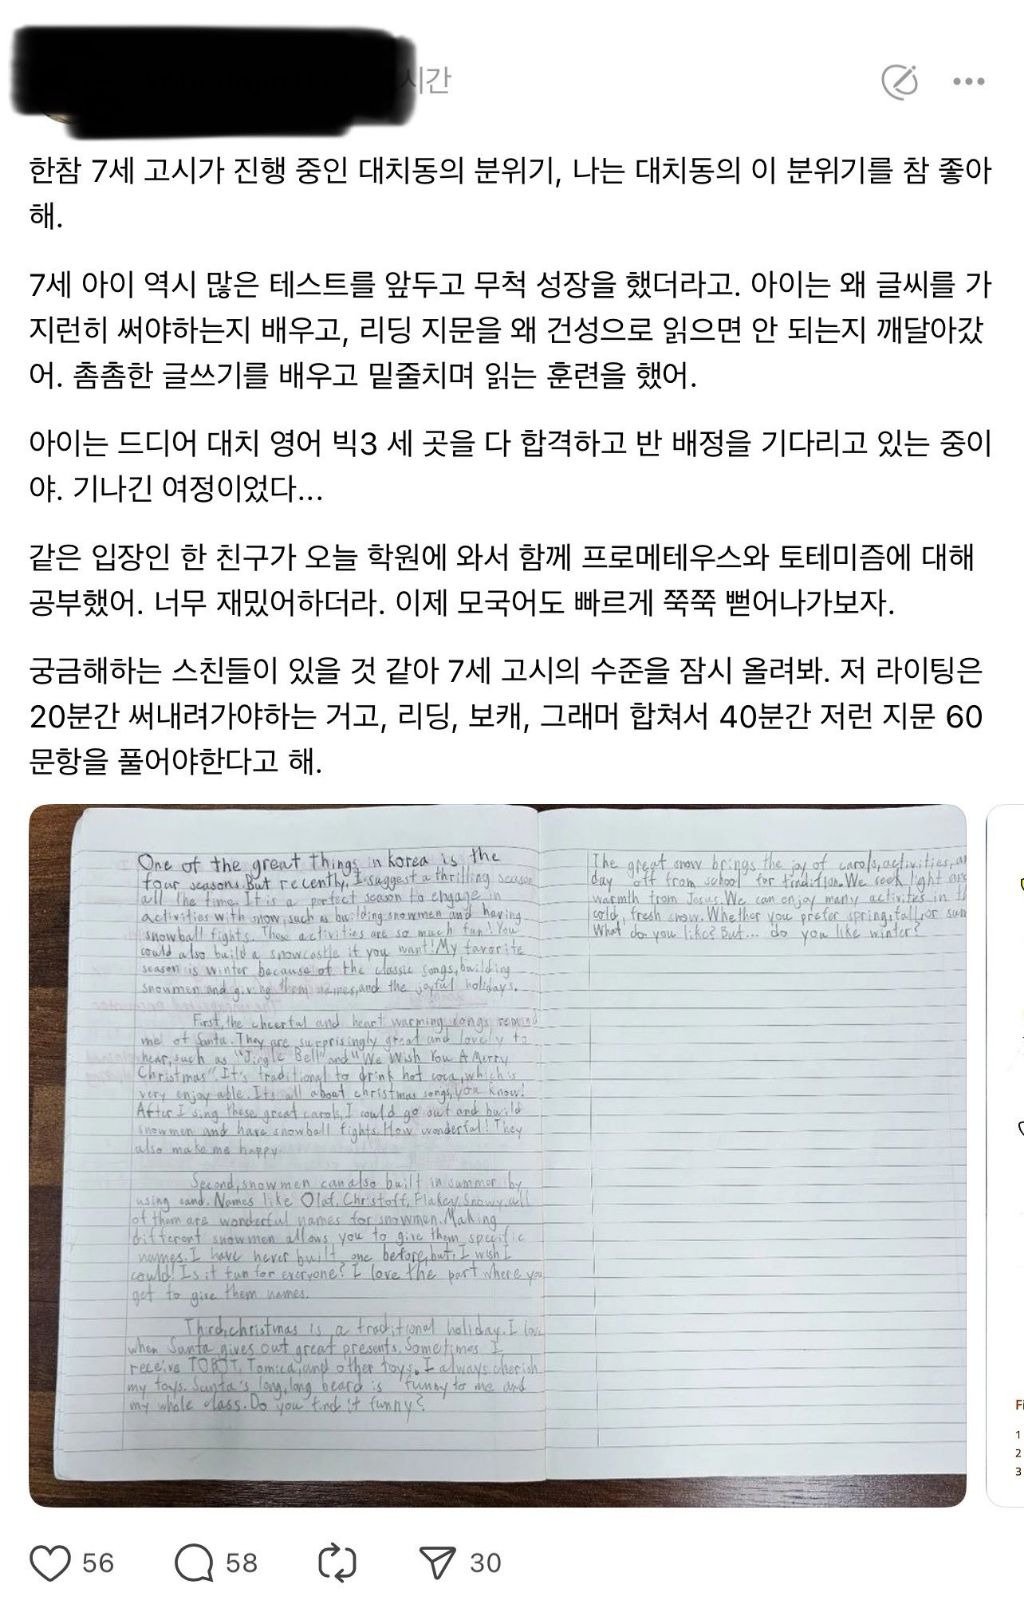 시간
한참 7세 고시가 진행 중인 대치동의 분위기, 나는 대치동의 이 분위기를 참 좋아
해.
7세 아이 역시 많은 테스트를 앞두고 무척 성장을 했더라고. 아이는 왜 글씨를 가
지런히 써야하는지 배우고, 리딩 지문을 왜 건성으로 읽으면 안 되는지 깨달아갔
어. 촘촘한 글쓰기를 배우고 밑줄치며 읽는 훈련을 했어.
아이는 드디어 대치 영어 빅3 세 곳을 다 합격하고 반 배정을 기다리고 있는 중이
야. 기나긴 여정이었다...
같은 입장인 한 친구가 오늘 학원에 와서 함께 프로메테우스와 토테미즘에 대해
공부했어. 너무 재밌어하더라. 이제 모국어도 빠르게 쭉쭉 뻗어나가보자.
궁금해하는 스친들이 있을 것 같아 7세 고시의 수준을 잠시 올려봐. 저 라이팅은
20분간 써내려가야하는 거고, 리딩, 보캐, 그래머 합쳐서 40분간 저런 지문 60
문항을 풀어야한다고 해.
One of the great things in korea is the
four seasons. But recently, I suggest a thrilling season
all the time. It is a perfect season to engage in
activities with snow, such as building snowmen and having
snowball fights. These activities are so much fun! You
could also build a snowcastle if you want! My favorite
season is winter because of the classic songs, building
snowmen and giving them names, and the joyful holidays.
First, the cheerful and heart warming songs remind
me of Santa. They are surprisingly great and lovely to
hear, such as "Jingle Bell" and "We Wish You A Merry
Christmas". It's traditional to drink hot coca, which is
very enjoy able. It's all about christmas songs, you know!
After I sing these great carols, I could go out and build
snowmen and have snowball fights. How wonderful! They
also make me happy.
Second, snowmen can also built in summer by
using sand. Names like Olaf, Christoff, Flakey, Snowy, all
of them are wonderful names for snowmen. Making
different snowmen allows you to give them specific
names. I have never built one before, but I wish I
could! Is it fun for everyone? I love the part where you
get to give them names.
Third, christmas is a traditional holiday. I love
when Santa gives out great presents. Sometimes I
receive TOBOT, Tomica, and other toys. I always cherish
my toys. Santa's long, long beard is funny to me and
my whole class. Do you find it funny?
The great snow brings the joy of carols, activities, an
day off from school for tradition. We seek light and
warmth from Jesus. We can enjoy many activites in th
cold, fresh snow. Whether you prefer spring, fall, or sum
What do you like? But... do you like winter?
Fi
1
2
3
56
58
30